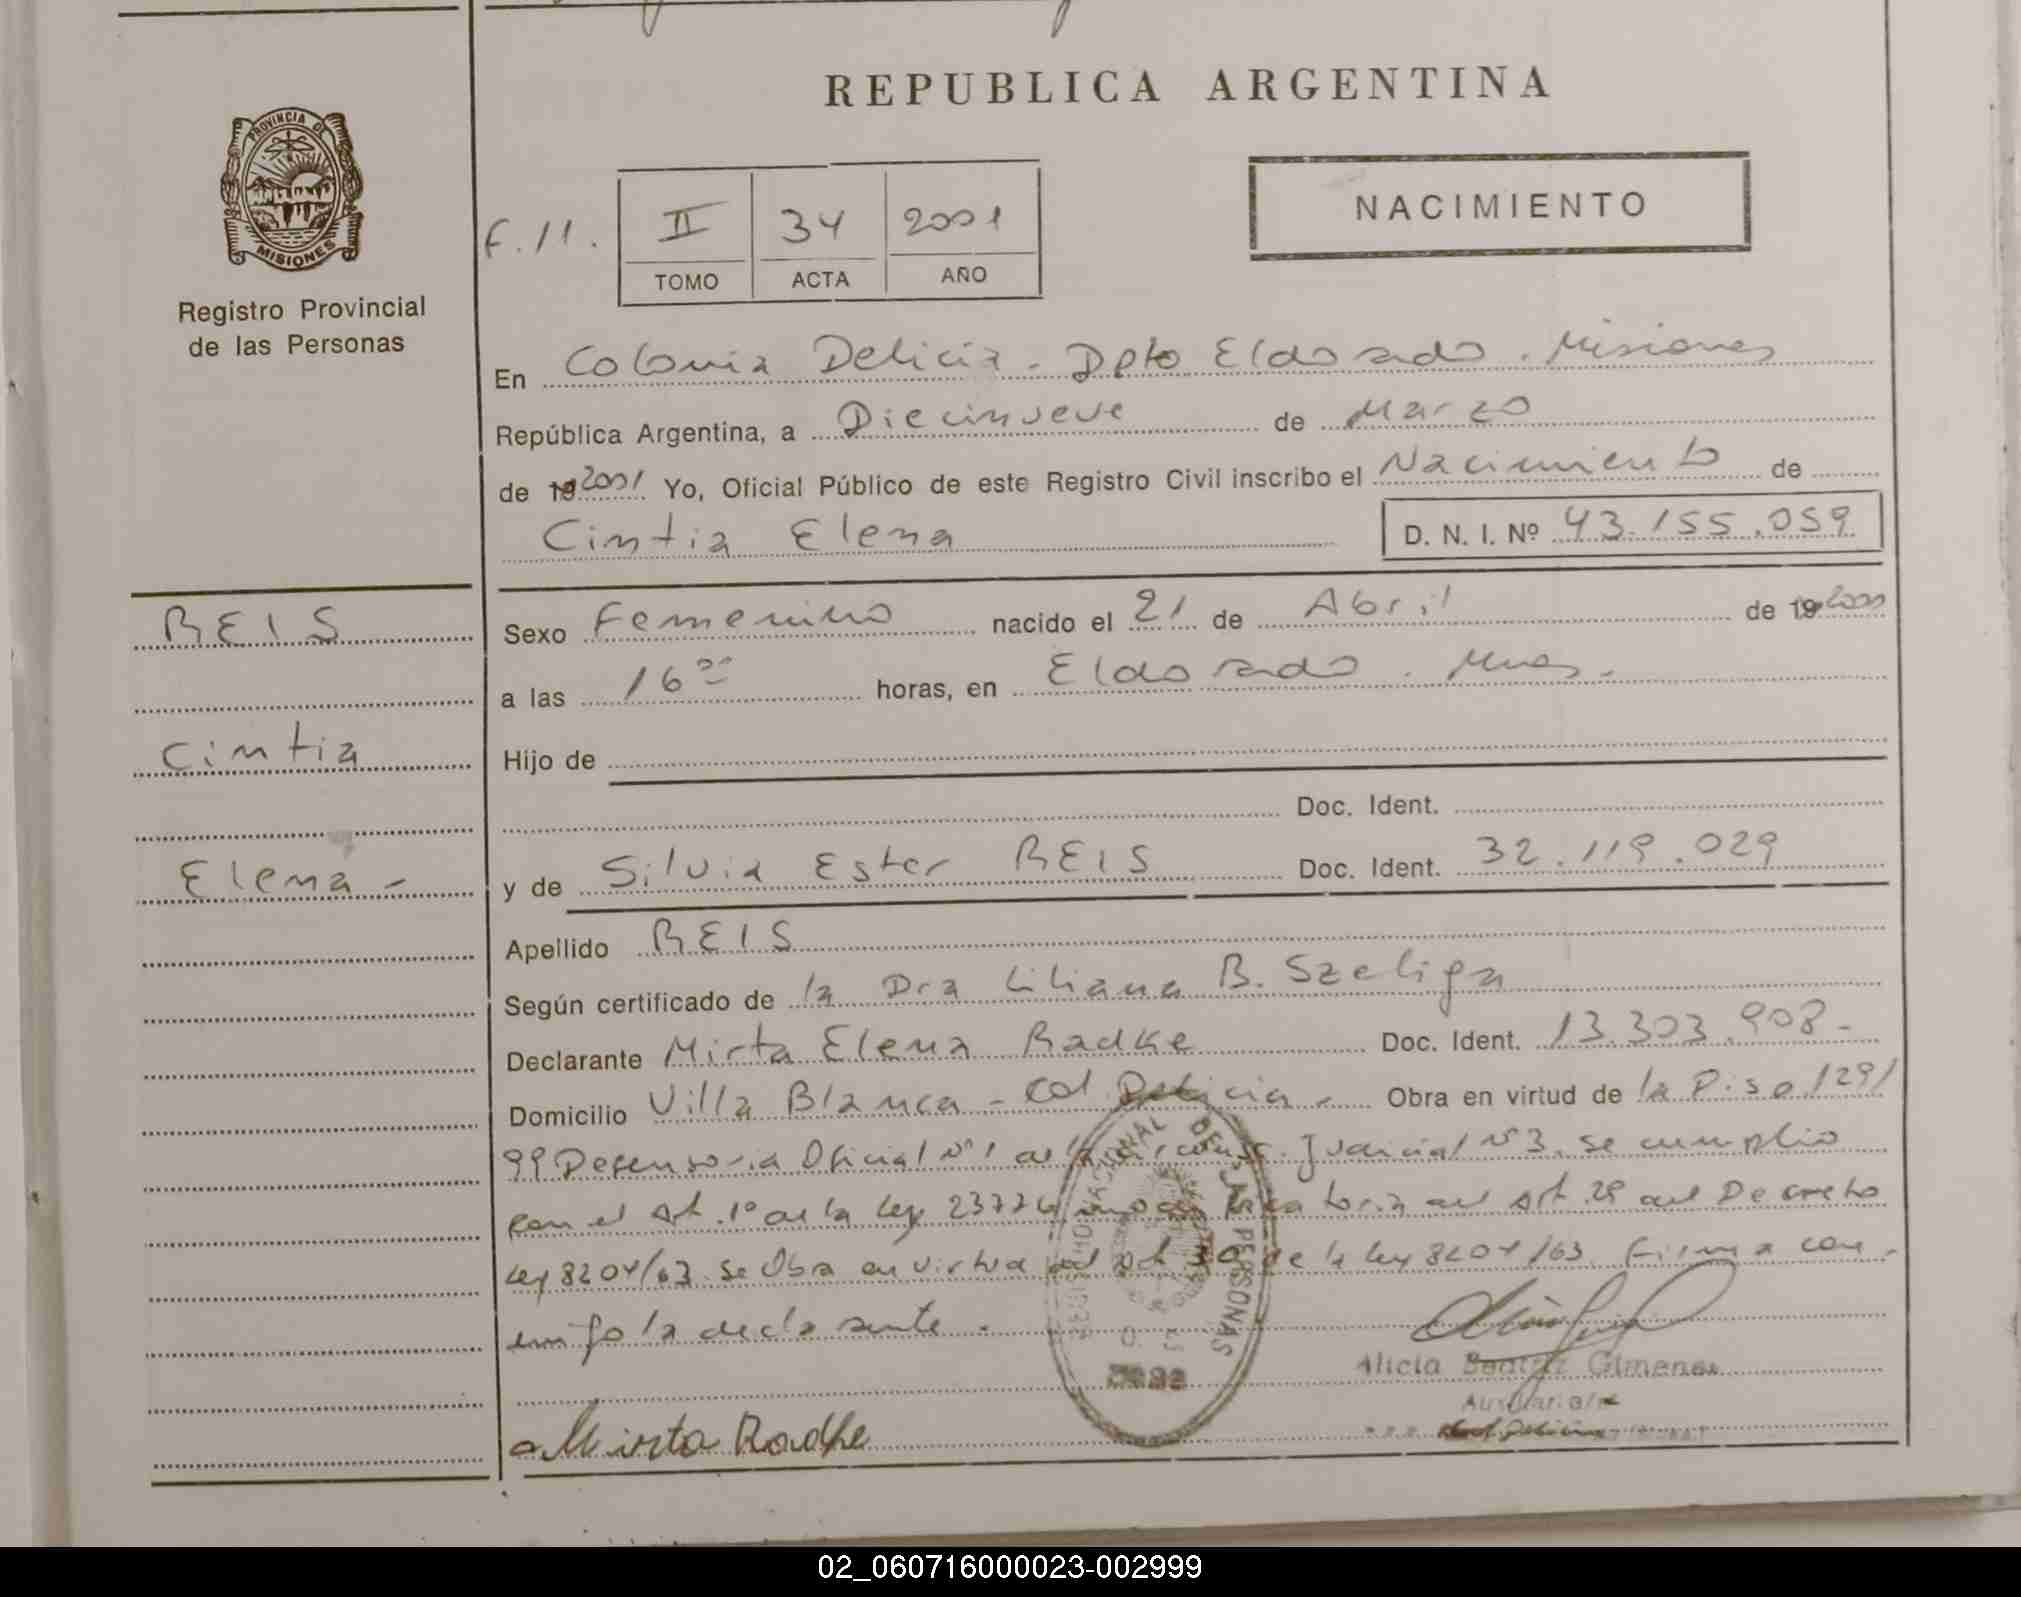 REPUBLICA ARGENTINA
PROVINCIA DE
MISIONES
Registro Provincial
de las Personas
NACIMIENTO
F. 11. II 34 2001
TOMO ACTA AÑO
En Colonia Delicia - Dpto Eldorado. Misiones
República Argentina, a Diecinueve de Marzo
de 19 2001 Yo, Oficial Público de este Registro Civil inscribo el Nacimiento de
Cintia Elena D. N. I. Nº 43.155.059
REIS
Cintia
Elena -
Sexo Femenino nacido el 21 de Abril de 19 2000
a las 16 00 horas, en Eldorado. Mnes.
Hijo de
Doc. Ident.
y de Silvia Ester REIS Doc. Ident. 32.119.029
Apellido REIS
Según certificado de la Dra Liliana B. Szeliga
Declarante Mirta Elena Radke Doc. Ident. 13.303.908-
Domicilio Villa Blanca - Col Delicia - Obra en virtud de la Disp 1291
99 Defensoria Oficial Nº 1 de la Judicial Nº 3. se cumplio
con el Art. 1º de la Ley 23776 del Art. 29 del Decreto
Ley 8204/63. Se Obra en virtud del Art 30 de la Ley 8204/63. Firma con-
migo la declarante.
PERSONAS
Alicia Beatriz Gimenez
Auxiliar
Col. Delicia
Mirta Radke
02_060716000023-002999